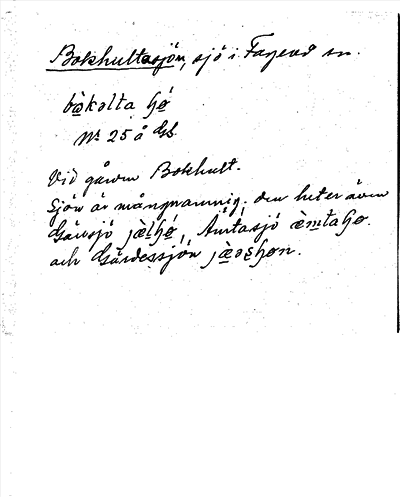 Bokhultasjön, sjö i Fagered sn.
bòkəlta ɧó
Nr 25 å Gsk.
Vid gården Bokhult.
Sjön är mångnamnig. den heter även
sjö jæ̀lɧó, Ämtasjö æ̀mtaɧo.
och Gärdessjön jæ̀ɧon.